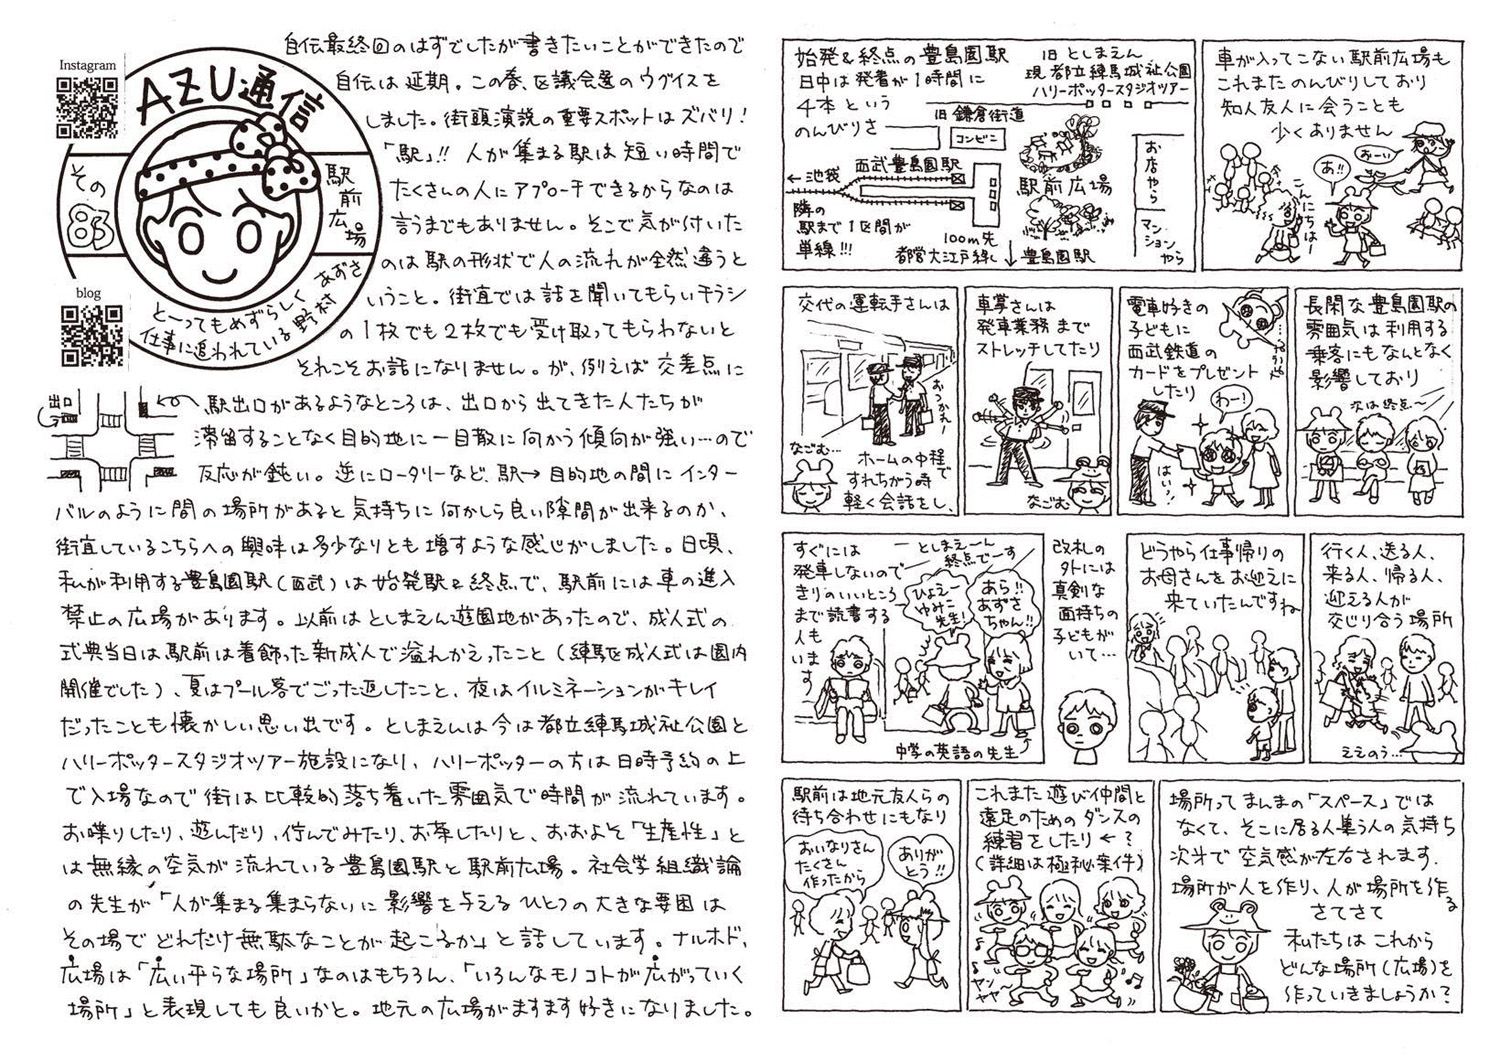 Instagram
AZU通信
その
83
駅前広場
blog
とーってもめずらしく
仕事に追われている野村あずさ
自伝最終回のはずでしたが書きたいことができたので
自伝は延期。この春、区議会選のウグイスを
しました。街頭演説の重要スポットはズバリ!
「駅」!! 人が集まる駅は短い時間で
たくさんの人にアプローチできるからなのは
言うまでもありません。そこで気が付いた
のは駅の形状で人の流れが全然違うと
いうこと。街宣では話を聞いてもらいチラシ
の1枚でも2枚でも受け取ってもらわないと
それこそお話になりません。が、例えば交差点に
出口
駅出口があるようなところは、出口から出てきた人たちが
滞留することなく目的地に一目散に向かう傾向が強い…ので
反応が鈍い。逆にロータリーなど、駅→目的地の間にインター
バルのように間の場所があると気持ちに何かしら良い隙間が出来るのか、
街宣しているこちらへの興味は多少なりとも増すような感じがしました。日頃、
私が利用する豊島園駅(西武)は始発駅&終点で、駅前には車の進入
禁止の広場があります。以前はとしまえん遊園地があったので、成人式の
式典当日は駅前は着飾った新成人で溢れかえったこと(練馬区成人式は園内
開催でした)、夏はプール客でごった返したこと、夜はイルミネーションがキレイ
だったことも懐かしい思い出です。としまえんは今は都立練馬城址公園と
ハリーポッタースタジオツアー施設になり、ハリーポッターの方は日時予約の上
で入場なので街は比較的落ち着いた雰囲気で時間が流れています。
お喋りしたり、遊んだり、佇んでみたり、お茶したりと、おおよそ「生産性」と
は無縁の空気が流れている豊島園駅と駅前広場。社会学組織論
の先生が「人が集まる集まらないに影響を与えるひとつの大きな要因は
その場でどれだけ無駄なことが起こるか」と話しています。ナルホド、
広場は「広い平らな場所」なのはもちろん、「いろんなモノコトが広がっていく
場所」と表現しても良いかと。地元の広場がますます好きになりました。
始発&終点の豊島園駅
日中は発着が1時間に
4本という
のんびりさ
旧 としまえん
現 都立練馬城址公園
ハリーポッタースタジオツアー
旧 鎌倉街道
コンビニ
西武豊島園駅
←池袋
駅前広場
お店やら
マンションやら
隣の
駅まで1区間が
単線!!!
100m先
都営大江戸線 ↓ 豊島園駅
車が入ってこない駅前広場も
これまたのんびりしており
知人友人に会うことも
少くありません
おーい
あ!!
こんにちはー
交代の運転手さんは
おつかれー
なごむ…
ホームの中程で
すれちがう時
軽く会話をし、
車掌さんは
発車業務まで
ストレッチしてたり
なごむ
電車好きの
子どもに
西武鉄道の
カードをプレゼント
したり
わー!
はい!
長閑な豊島園駅の
雰囲気は利用する
乗客にもなんとなく
影響しており
次は終点〜
すぐには
発車しないので
きりのいいところ
まで読書する
人も
います
としまえーん
終点でーす
ひょえー
ゆみこ
先生!
あら!!
あずさ
ちゃん!!
中学の英語の先生
改札の
外には
真剣な
面持ちの
子どもが
いて…
どうやら仕事帰りの
お母さんをお迎えに
来ていたんですね
行く人、送る人、
来る人、帰る人、
迎える人が
交じり合う場所
ええのう…
駅前は地元友人らの
待ち合わせにもなり
おいなりさん
たくさん
作ったから
ありが
とう!!
これまた遊び仲間と
遠足のためのダンスの
練習をしたり←?
(詳細は極秘案件)
ヤンヤヤー
場所ってまんまの「スペース」では
なくて、そこに居る人集う人の気持ち
次第で空気感が左右されます。
場所が人を作り、人が場所を作る
さてさて
私たちはこれから
どんな場所(広場)を
作っていきましょうか?